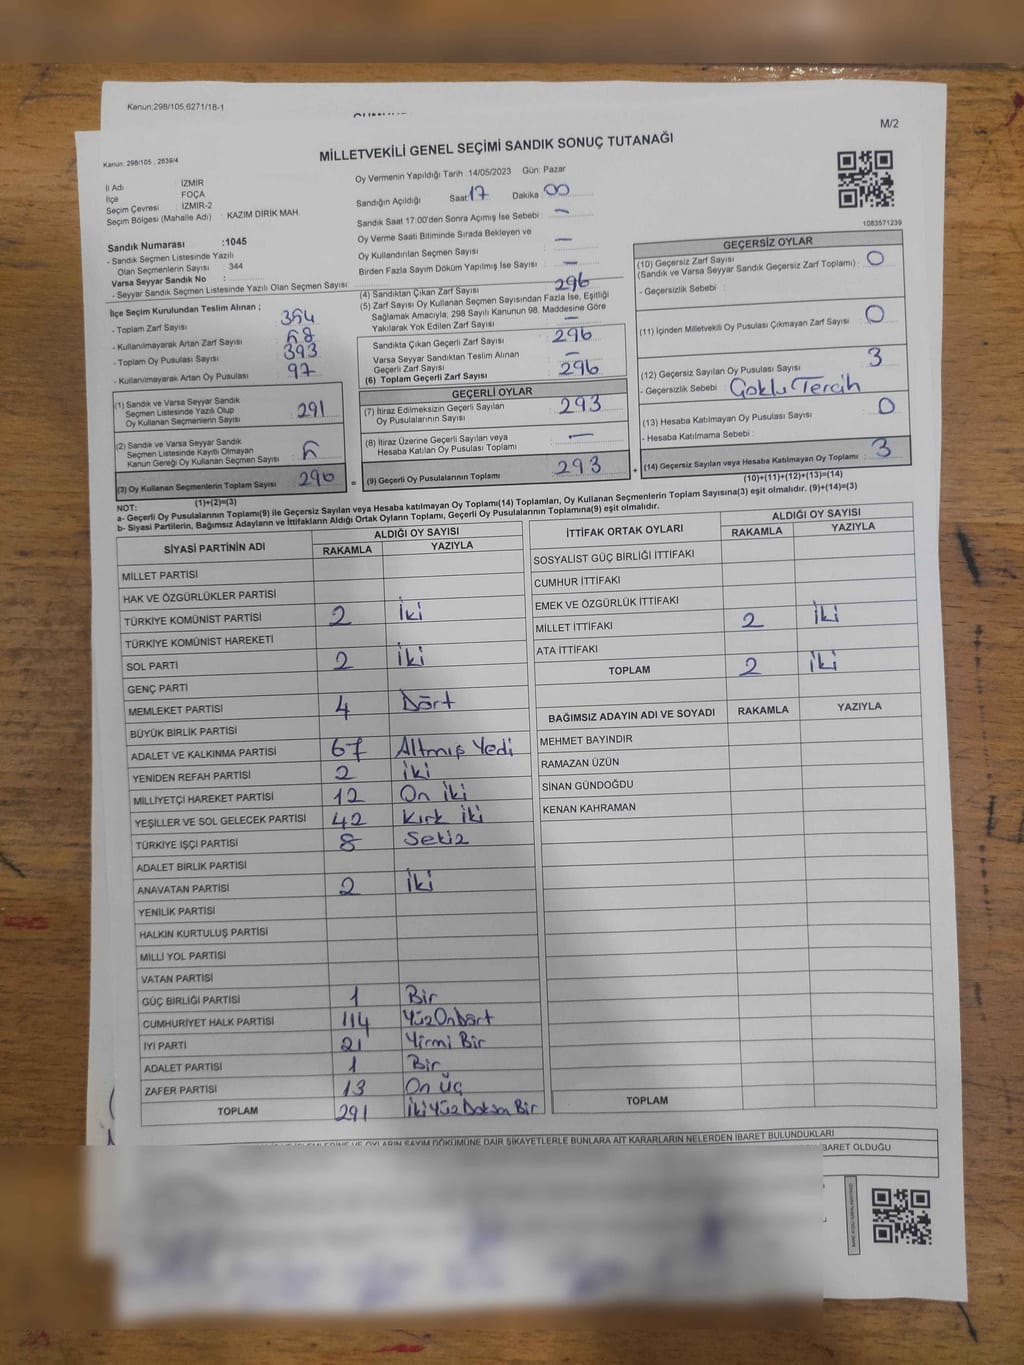 Kanun:298/105,6271/18-1
M/2
Kanun: 298/105 , 2839/4
MİLLETVEKİLİ GENEL SEÇİMİ SANDIK SONUÇ TUTANAĞI
İl Adı : İZMİR
İlçe : FOÇA
Seçim Çevresi : İZMİR-2
Seçim Bölgesi (Mahalle Adı) : KAZIM DİRİK MAH.
Sandık Numarası :1045
- Sandık Seçmen Listesinde Yazılı
Olan Seçmenlerin Sayısı : 344
Varsa Seyyar Sandık No :
- Seyyar Sandık Seçmen Listesinde Yazılı Olan Seçmen Sayısı:
Oy Vermenin Yapıldığı Tarih :14/05/2023 Gün: Pazar
Sandığın Açıldığı Saat 17 Dakika 00
Sandık Saat 17:00'den Sonra Açımış İse Sebebi : –
Oy Verme Saati Bitiminde Sırada Bekleyen ve
Oy Kullandırılan Seçmen Sayısı : –
Birden Fazla Sayım Döküm Yapılmış İse Sayısı : –
1083571239
İlçe Seçim Kurulundan Teslim Alınan ;
- Toplam Zarf Sayısı :
- Kullanılmayarak Artan Zarf Sayısı :
- Toplam Oy Pusulası Sayısı : 393
- Kullanılmayarak Artan Oy Pusulası : 97
(1) Sandık ve Varsa Seyyar Sandık
Seçmen Listesinde Yazılı Olup
Oy Kullanan Seçmenlerin Sayısı : 291
(2) Sandık ve Varsa Seyyar Sandık
Seçmen Listesinde Kayıtlı Olmayan
Kanun Gereği Oy Kullanan Seçmen Sayısı :
(3) Oy Kullanan Seçmenlerin Toplam Sayısı : 296
(1)+(2)=(3)
(4) Sandıktan Çıkan Zarf Sayısı : 296
(5) Zarf Sayısı Oy Kullanan Seçmen Sayısından Fazla İse, Eşitliği
Sağlamak Amacıyla, 298 Sayılı Kanunun 98. Maddesine Göre
Yakılarak Yok Edilen Zarf Sayısı : –
Sandıkta Çıkan Geçerli Zarf Sayısı : 296
Varsa Seyyar Sandıktan Teslim Alınan
Geçerli Zarf Sayısı : –
(6) Toplam Geçerli Zarf Sayısı : 296
=
GEÇERLİ OYLAR
(7) İtiraz Edilmeksizin Geçerli Sayılan
Oy Pusulalarının Sayısı : 293
(8) İtiraz Üzerine Geçerli Sayılan veya
Hesaba Katılan Oy Pusulası Toplamı : –
(9) Geçerli Oy Pusulalarının Toplamı : 293
+
GEÇERSİZ OYLAR
(10) Geçersiz Zarf Sayısı
(Sandık ve Varsa Seyyar Sandık Geçersiz Zarf Toplamı) : 0
- Geçersizlik Sebebi :
(11) İçinden Milletvekili Oy Pusulası Çıkmayan Zarf Sayısı : 0
(12) Geçersiz Sayılan Oy Pusulası Sayısı : 3
- Geçersizlik Sebebi : Çoklu Tercih
(13) Hesaba Katılmayan Oy Pusulası Sayısı : 0
- Hesaba Katılmama Sebebi :
(14) Geçersiz Sayılan veya Hesaba Katılmayan Oy Toplamı : 3
(10)+(11)+(12)+(13)=(14)
NOT:
a- Geçerli Oy Pusulalarının Toplamı(9) ile Geçersiz Sayılan veya Hesaba katılmayan Oy Toplamı(14) Toplamları, Oy Kullanan Seçmenlerin Toplam Sayısına(3) eşit olmalıdır. (9)+(14)=(3)
b- Siyasi Partilerin, Bağımsız Adayların ve İttifakların Aldığı Ortak Oyların Toplamı, Geçerli Oy Pusulalarının Toplamına(9) eşit olmalıdır.
SİYASİ PARTİNİN ADI ALDIĞI OY SAYISI
RAKAMLA YAZIYLA
MİLLET PARTİSİ
HAK VE ÖZGÜRLÜKLER PARTİSİ
TÜRKİYE KOMÜNİST PARTİSİ 2 İki
TÜRKİYE KOMÜNİST HAREKETİ
SOL PARTİ 2 İki
GENÇ PARTİ
MEMLEKET PARTİSİ 4 Dört
BÜYÜK BİRLİK PARTİSİ
ADALET VE KALKINMA PARTİSİ 67 Altmış Yedi
YENİDEN REFAH PARTİSİ 2 İki
MİLLİYETÇİ HAREKET PARTİSİ 12 On iki
YEŞİLLER VE SOL GELECEK PARTİSİ 42 Kırk iki
TÜRKİYE İŞÇİ PARTİSİ 8 Sekiz
ADALET BİRLİK PARTİSİ
ANAVATAN PARTİSİ 2 İki
YENİLİK PARTİSİ
HALKIN KURTULUŞ PARTİSİ
MİLLİ YOL PARTİSİ
VATAN PARTİSİ
GÜÇ BİRLİĞİ PARTİSİ 1 Bir
CUMHURİYET HALK PARTİSİ 114 YüzOndört
İYİ PARTİ 21 Yirmi Bir
ADALET PARTİSİ 1 Bir
ZAFER PARTİSİ 13 On üç
TOPLAM 291 İkiYüzDoksan Bir
İTTİFAK ORTAK OYLARI ALDIĞI OY SAYISI
RAKAMLA YAZIYLA
SOSYALİST GÜÇ BİRLİĞİ İTTİFAKI
CUMHUR İTTİFAKI
EMEK VE ÖZGÜRLÜK İTTİFAKI
MİLLET İTTİFAKI 2 İki
ATA İTTİFAKI
TOPLAM 2 İki
BAĞIMSIZ ADAYIN ADI VE SOYADI RAKAMLA YAZIYLA
MEHMET BAYINDIR
RAMAZAN ÜZÜN
SİNAN GÜNDOĞDU
KENAN KAHRAMAN
TOPLAM
OYLARIN SAYIM DÖKÜMÜNE DAİR ŞİKAYETLERLE BUNLARA AİT KARARLARIN NELERDEN İBARET BULUNDUKLARI
İBARET OLDUĞU